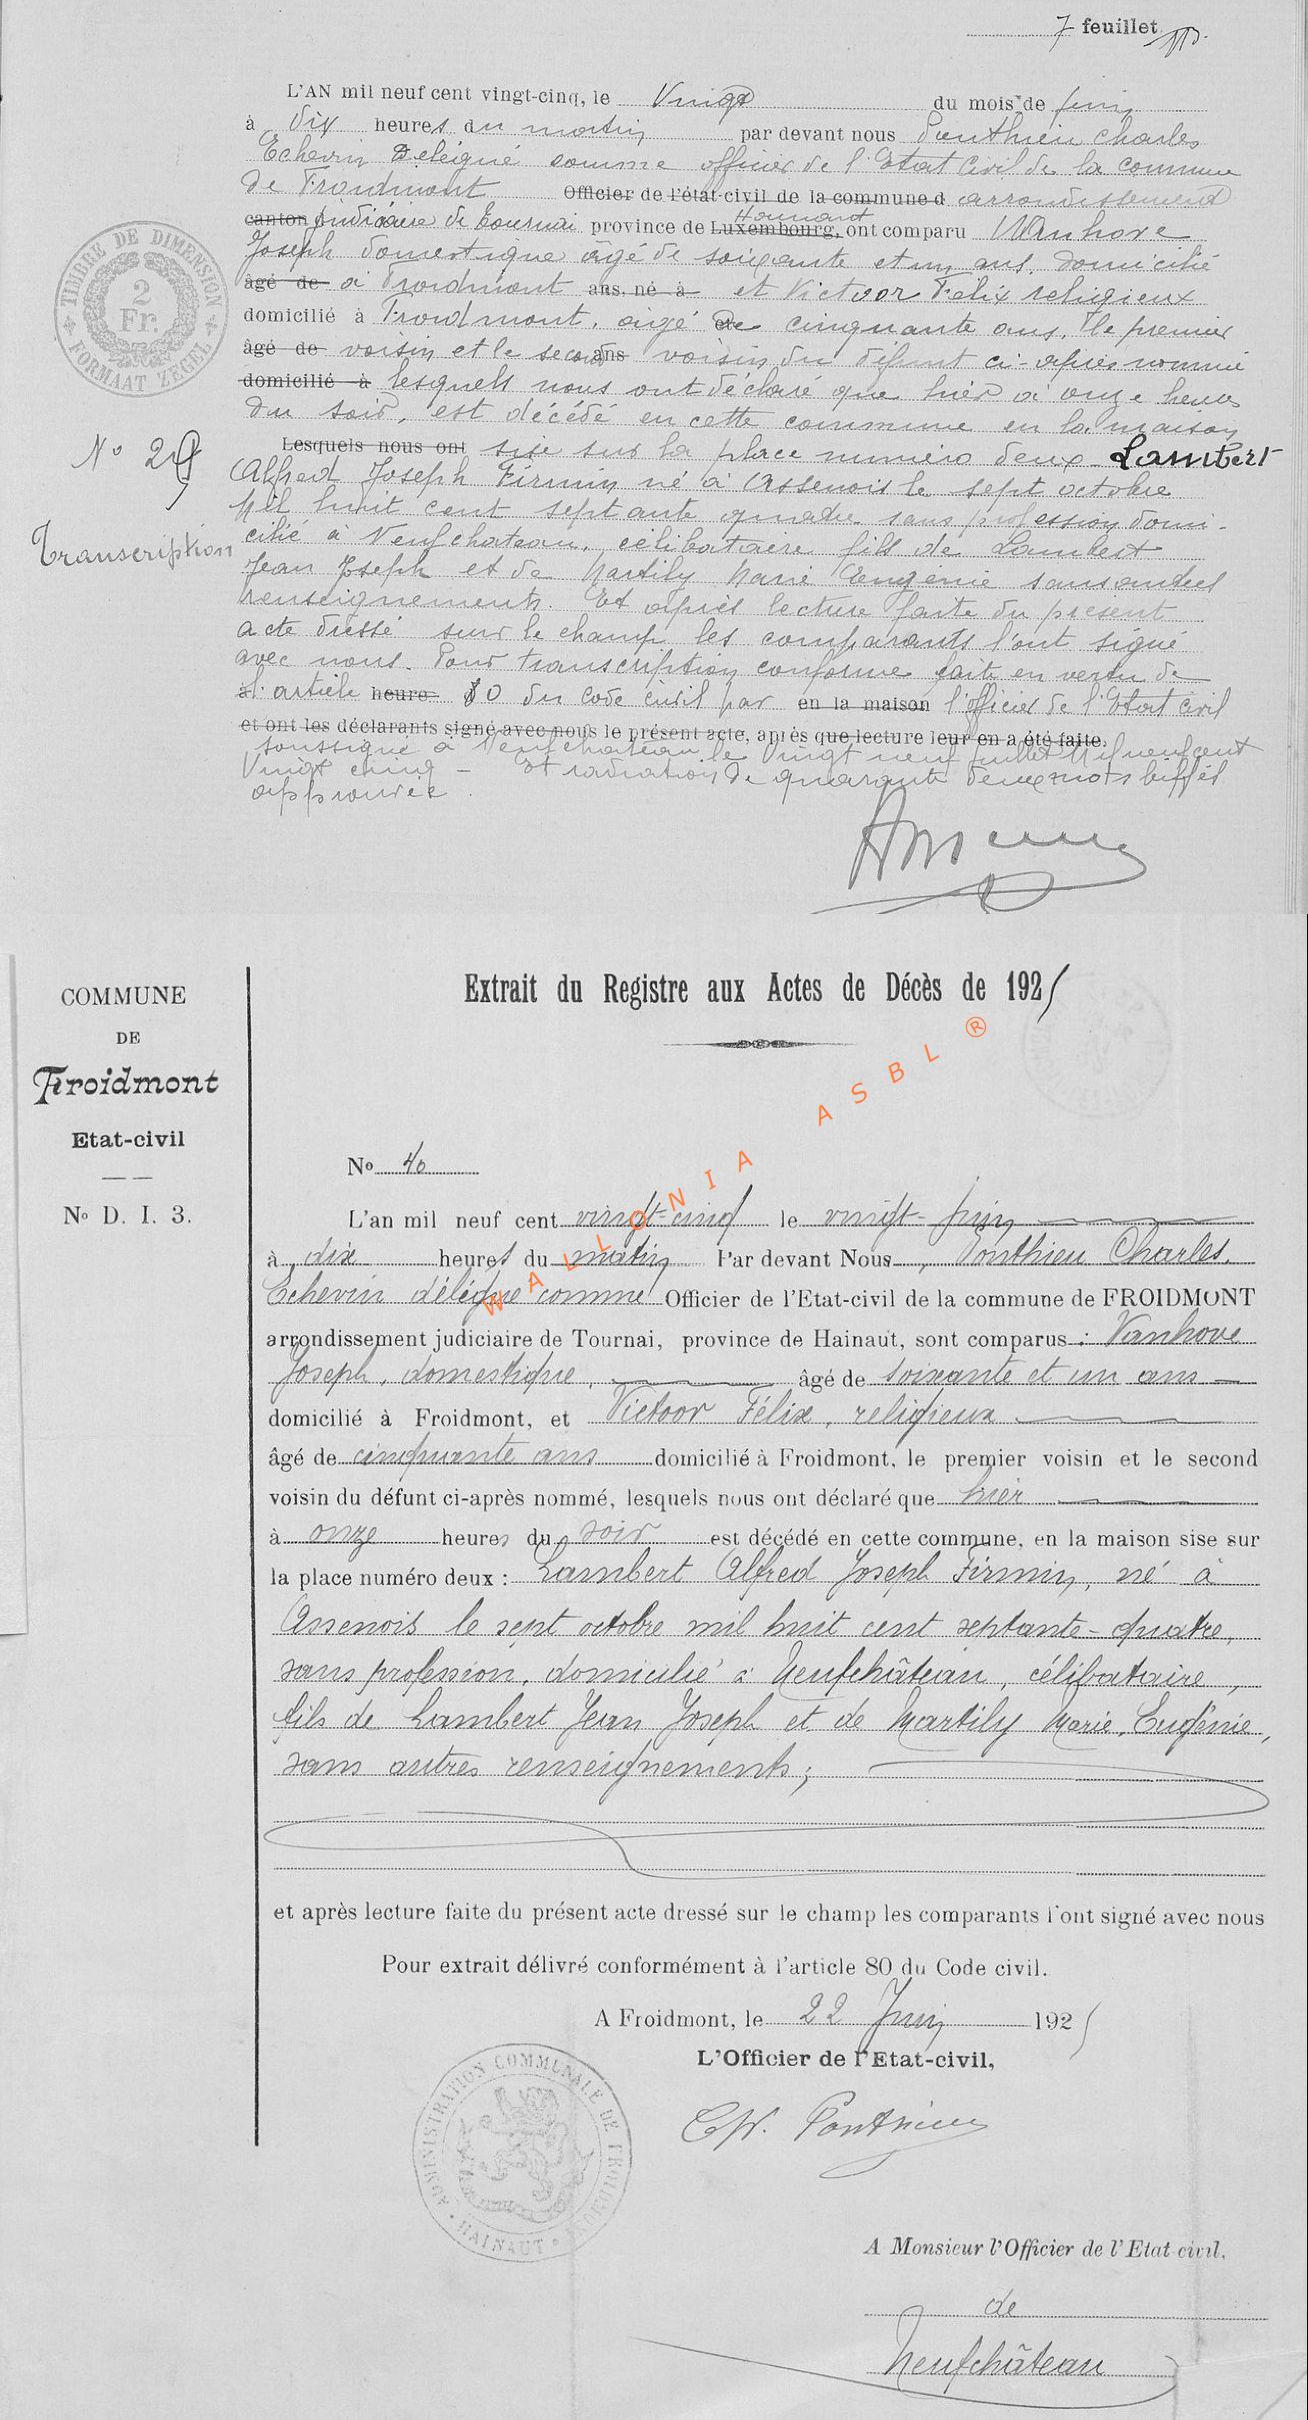 7 feuillet
L'AN mil neuf cent vingt-cinq, le Vingt du mois de juin
à dix heures du matin par devant nous Ponthieu Charles
Echevin Délégué comme officier de l'Etat Civil de la commune
de Froidmont Officier de l'état-civil de la commune d arrondissement
canton judiciaire de Tournai province de Luxembourg, Hainaut ont comparu VanHove
Joseph domestique âgé de soixante et un ans, domicilié
âgé de à Froidmont ans, né à et Victoor Félix religieux
domicilié à Froidmont, âgé de cinquante ans, le premier
âgé de voisin et le second ans voisin du défunt ci-après nommé
domicilié à lesquels nous ont déclaré que hier à onze heures
du soir, est décédé en cette commune en la maison
Lesquels nous ont sise sur la place numéro deux Lambert
Alfred Joseph Firmin né à Assenois le sept octobre
Mil huit cent septante quatre sans profession domi-
cilié à Neufchateau, célibataire fils de Lambert
Jean Joseph et de Martily Marie Eugénie sans autres
renseignements. Et après lecture faite du présent
acte dressé sur le champ les comparants l'ont signé
avec nous. Pour transcription conforme faite en vertu de
à l'article heure 80 du code civil par en la maison l'officier de l'Etat civil
et ont les déclarants signé avec nous le présent acte, après que lecture leur en a été faite.
soussigné à Neufchateau le Vingt neuf juillet Mil neuf cent
Vingt cinq - Et radiation de quarante deux mots biffés
approuvée.
No 29
Transcription
TIMBRE DE DIMENSION
2
Fr.
FORMAAT ZEGEL
COMMUNE
DE
Froidmont
Etat-civil
No D. I. 3.
Extrait du Registre aux Actes de Décès de 1925
WALLONIA ASBL ®
No 40
L'an mil neuf cent vingt-cinq le vingt-juin
à dix heures du matin Par devant Nous, Ponthieu Charles,
Echevin délégué comme Officier de l'Etat-civil de la commune de FROIDMONT
arrondissement judiciaire de Tournai, province de Hainaut, sont comparus : Vanhove
Joseph, domestique, âgé de soixante et un ans
domicilié à Froidmont, et Victoor Félix, religieux
âgé de cinquante ans domicilié à Froidmont, le premier voisin et le second
voisin du défunt ci-après nommé, lesquels nous ont déclaré que hier
à onze heures du soir est décédé en cette commune, en la maison sise sur
la place numéro deux : Lambert Alfred Joseph Firmin, né à
Assenois le sept octobre mil huit cent septante-quatre,
sans profession, domicilié à Neufchâteau, célibataire,
fils de Lambert Jean Joseph et de Martily Marie, Eugénie,
sans autres renseignements;
et après lecture faite du présent acte dressé sur le champ les comparants l'ont signé avec nous
Pour extrait délivré conformément à l'article 80 du Code civil.
A Froidmont, le 22 Juin 1925
L'Officier de l'Etat-civil,
Ch. Ponthieu
ADMINISTRATION COMMUNALE DE FROIDMONT
HAINAUT
A Monsieur l'Officier de l'Etat civil,
de
Neufchâteau